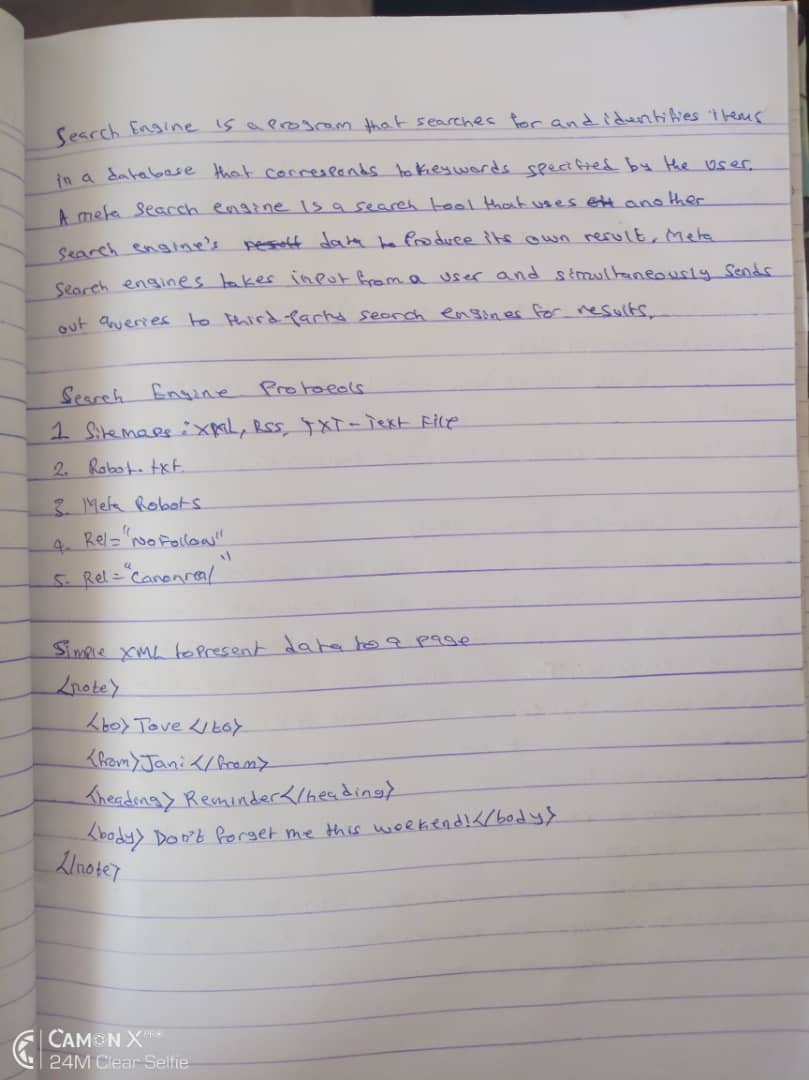 Search Engine is a program that searches for and identifies items
in a database that corresponds to keywords specified by the user.
A meta search engine is a search tool that uses another
search engine's data to produce its own result. Meta
search engines takes input from a user and simultaneously sends
out queries to third-party search engines for results.
Search Engine Protocols
1 Sitemaps: XML, RSS, TXT - Text File
2. Robot.txt
3. Meta Robots
4. Rel="NoFollow"
5. Rel="Canonical"
Simple XML to present data to a page
<note>
<to> Tove </to>
<from> Jani </from>
<heading> Reminder </heading>
<body> Don't forget me this weekend! </body>
</note>
CAMON X PRO
24M Clear Selfie